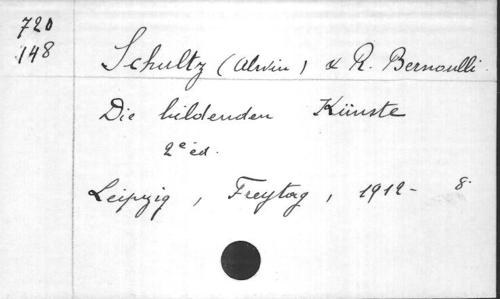 720
148
Schultz (Alwin) & R. Bernoulli.
Die bildenden Künste
2e éd.
Leipzig, Freytag, 1912- 8.